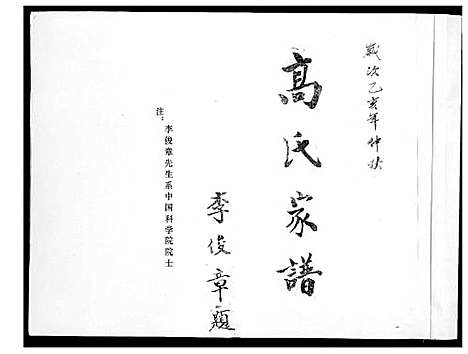 歲次乙亥年仲秋
高氏家譜
李俊章題
注：李俊章先生系中国科学院院士